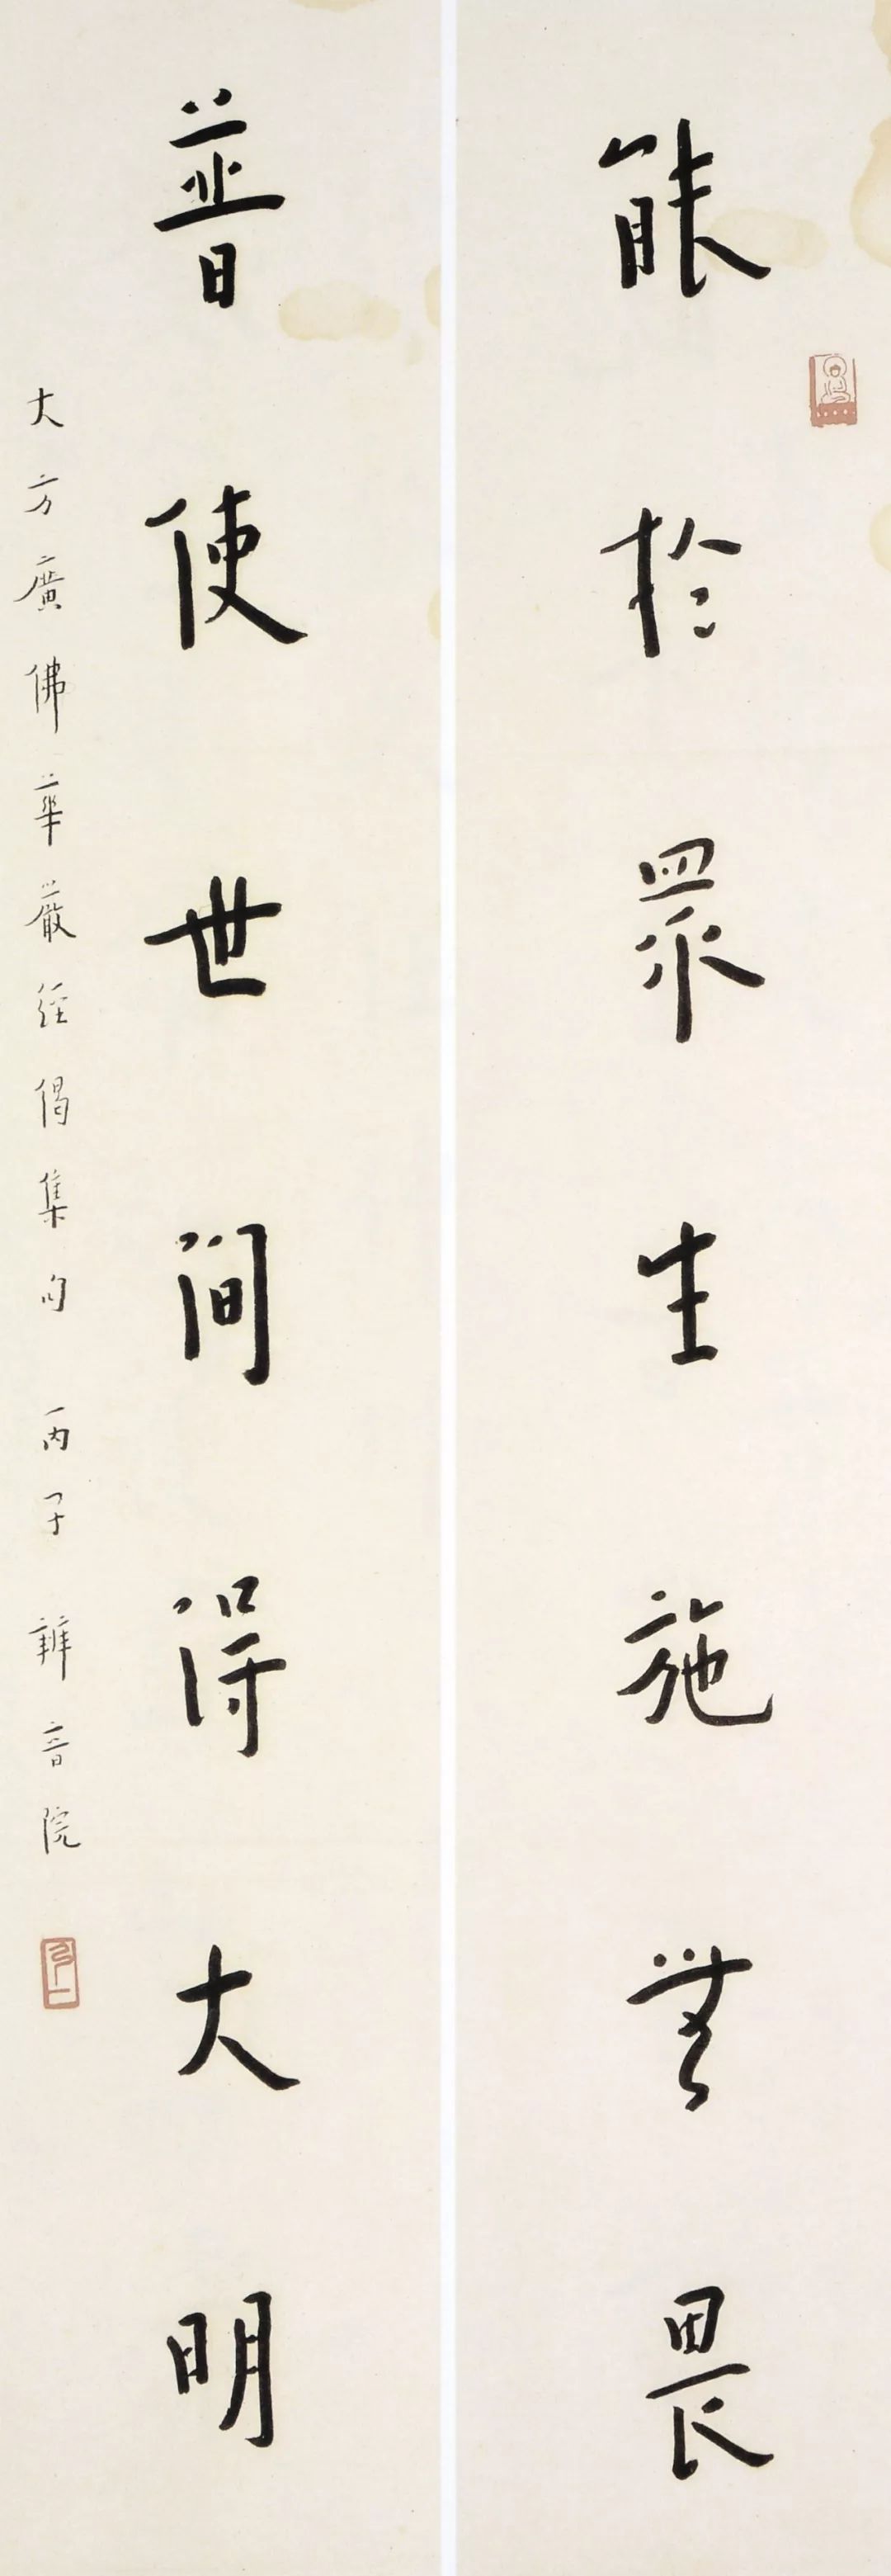 能於眾生施無畏
普使世間得大明
大方廣佛華嚴經偈集句 丙子 辦音院